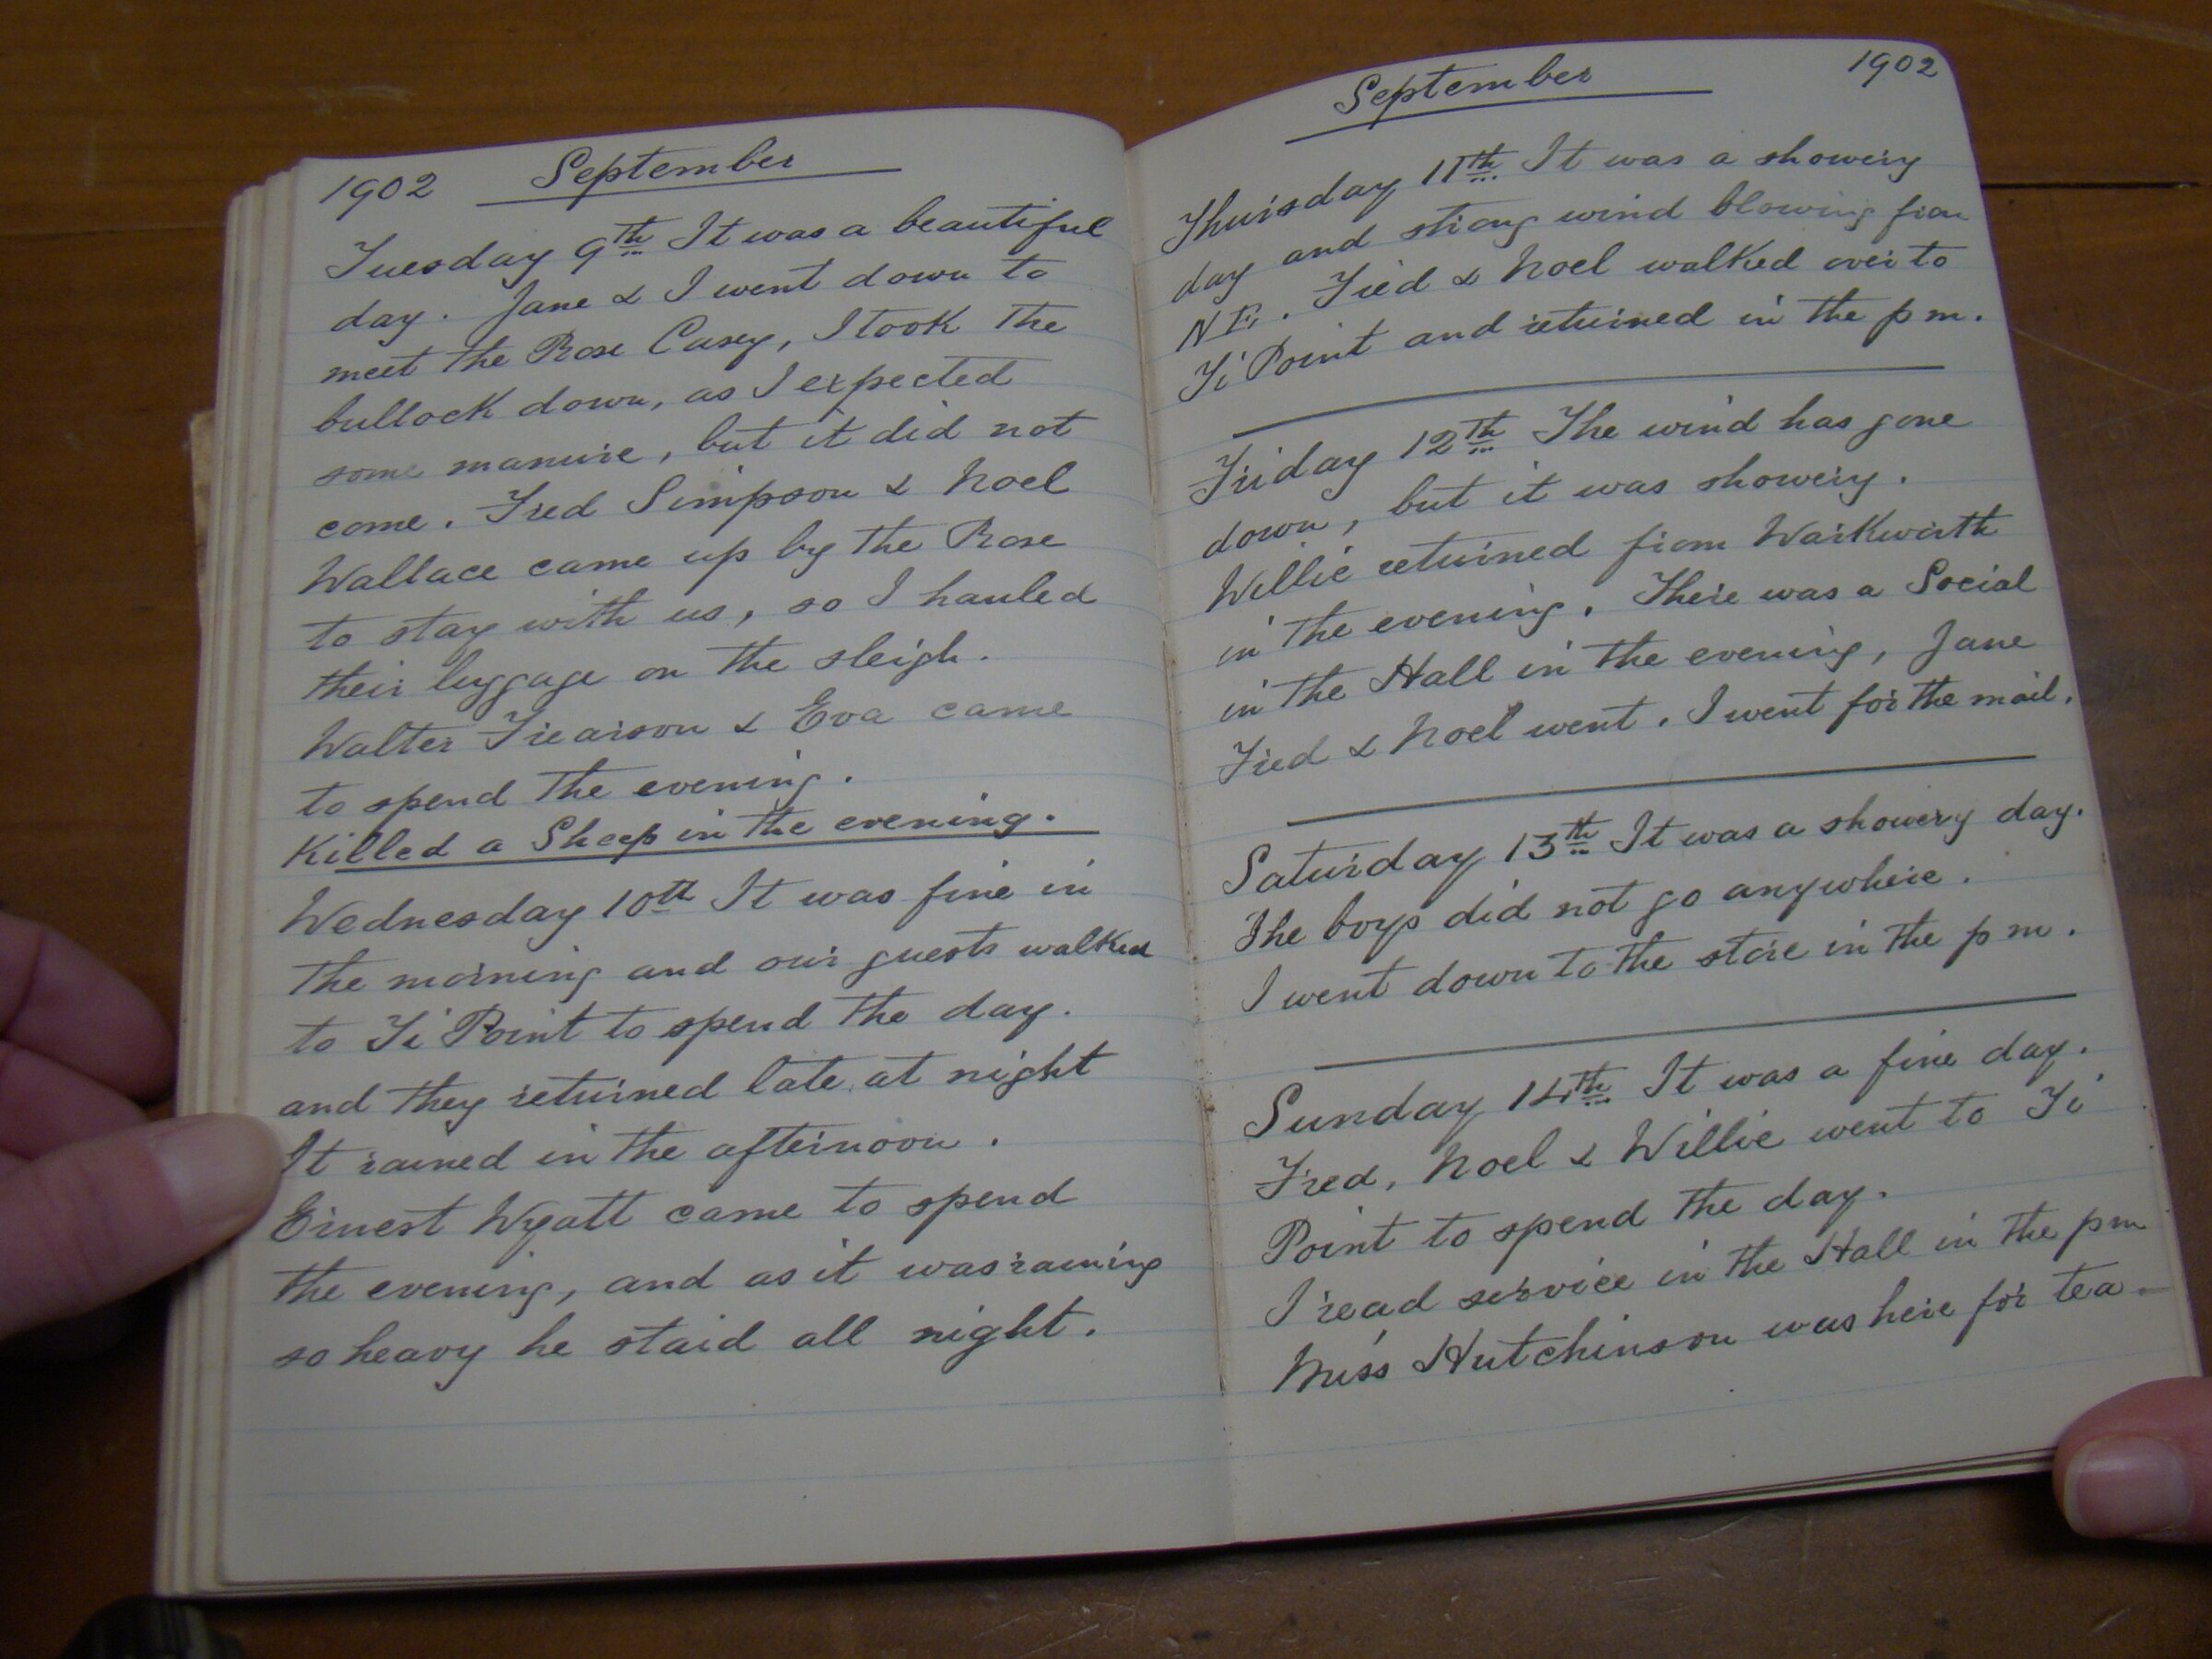 1902 September
Tuesday 9th It was a beautiful
day. Jane & I went down to
meet the Rose Casey, I took the
bullock down, as I expected
some manure, but it did not
come. Fred Simpson & Noel
Wallace came up by the Rose
to stay with us, so I hauled
their luggage on the sleigh.
Walter Frearson & Eva came
to spend the evening.
Killed a Sheep in the evening.
Wednesday 10th It was fine in
the morning and our guests walked
to Ti Point to spend the day.
and they returned late at night
It rained in the afternoon.
Ernest Wyatt came to spend
the evening, and as it was raining
so heavy he staid all night.
September 1902
Thursday 11th It was a showery
day and strong wind blowing from
NE. Fred & Noel walked over to
Ti Point and returned in the pm.
Friday 12th The wind has gone
down, but it was showery.
Willie returned from Warkworth
in the evening. There was a Social
in the Hall in the evening, Jane
Fred & Noel went. I went for the mail.
Saturday 13th It was a showery day.
The boys did not go anywhere.
I went down to the store in the pm.
Sunday 14th It was a fine day.
Fred, Noel & Willie went to Ti
Point to spend the day.
I read service in the Hall in the pm
Miss Hutchinson was here for tea.